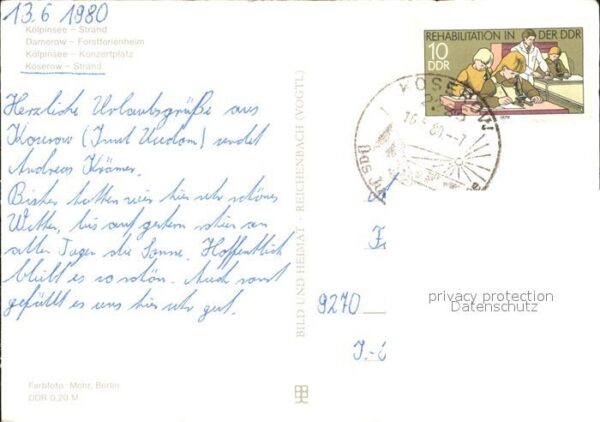 13.6 1980
Kölpinsee – Strand
Damerow – Forstferienheim
Kölpinsee – Konzertplatz
Koserow – Strand
Herzliche Urlaubsgrüße aus
Koserow (Insel Usedom) sendet
Andreas Krämer.
Bisher hatten wir hier sehr schönes
Wetter, bis auf gestern schien an
allen Tagen die Sonne. Hoffentlich
bleibt es so schön. Auch sonst
gefällt es uns hier sehr gut.
Farbfoto: Mohr, Berlin
DDR 0,20 M
BILD UND HEIMAT · REICHENBACH (VOGTL)
REHABILITATION IN DER DDR
10
DDR
KOSEROW
9270
privacy protection
Datenschutz